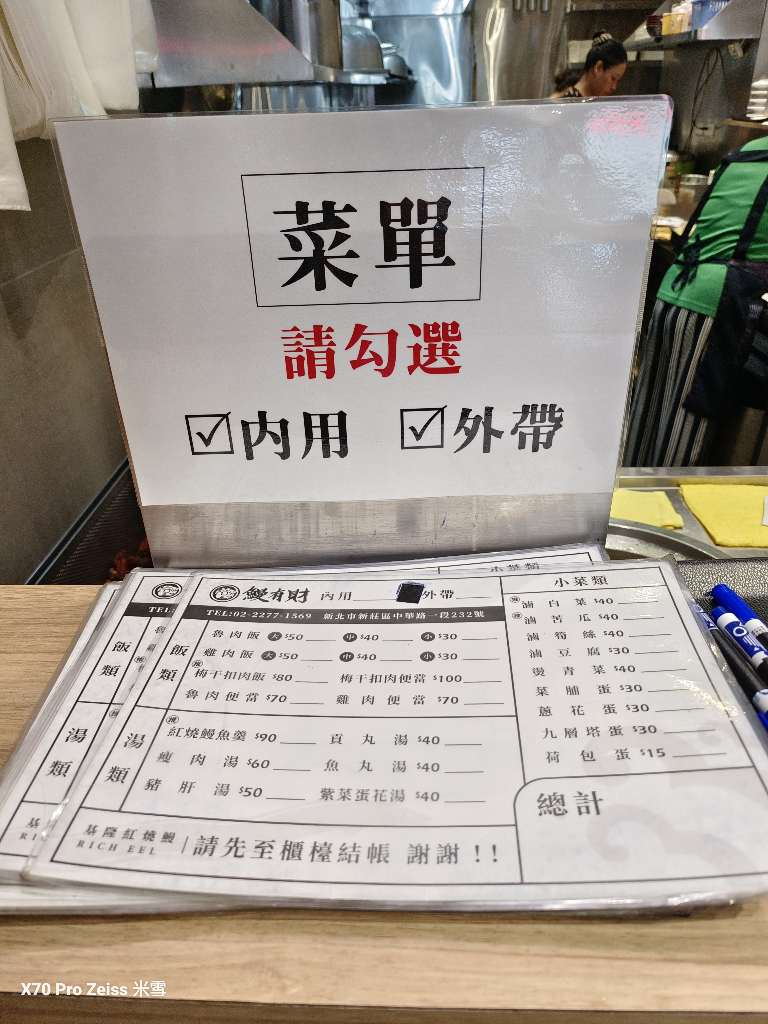 菜單
請勾選
☑內用 ☑外帶
小菜類
鰻有財 內用 外帶
TEL:02-2277-1569 新北市新莊區中華路一段232號
飯類
魯肉飯 大$50 中$40 小$30
雞肉飯 大$50 中$40 小$30
梅干扣肉飯 $80 梅干扣肉便當 $100
魯肉便當 $70 雞肉便當 $70
湯類
紅燒鰻魚羹 $90 貢丸湯 $40
瘦肉湯 $60 魚丸湯 $40
豬肝湯 $50 紫菜蛋花湯 $40
小菜類
滷白菜 $40
滷苦瓜 $40
滷筍絲 $40
滷豆腐 $30
燙青菜 $40
菜脯蛋 $30
蔥花蛋 $30
九層塔蛋 $30
荷包蛋 $15
總計
基隆紅燒鰻
RICH EEL
請先至櫃檯結帳 謝謝!!
TEL
飯類
湯類
X70 Pro Zeiss 米雪